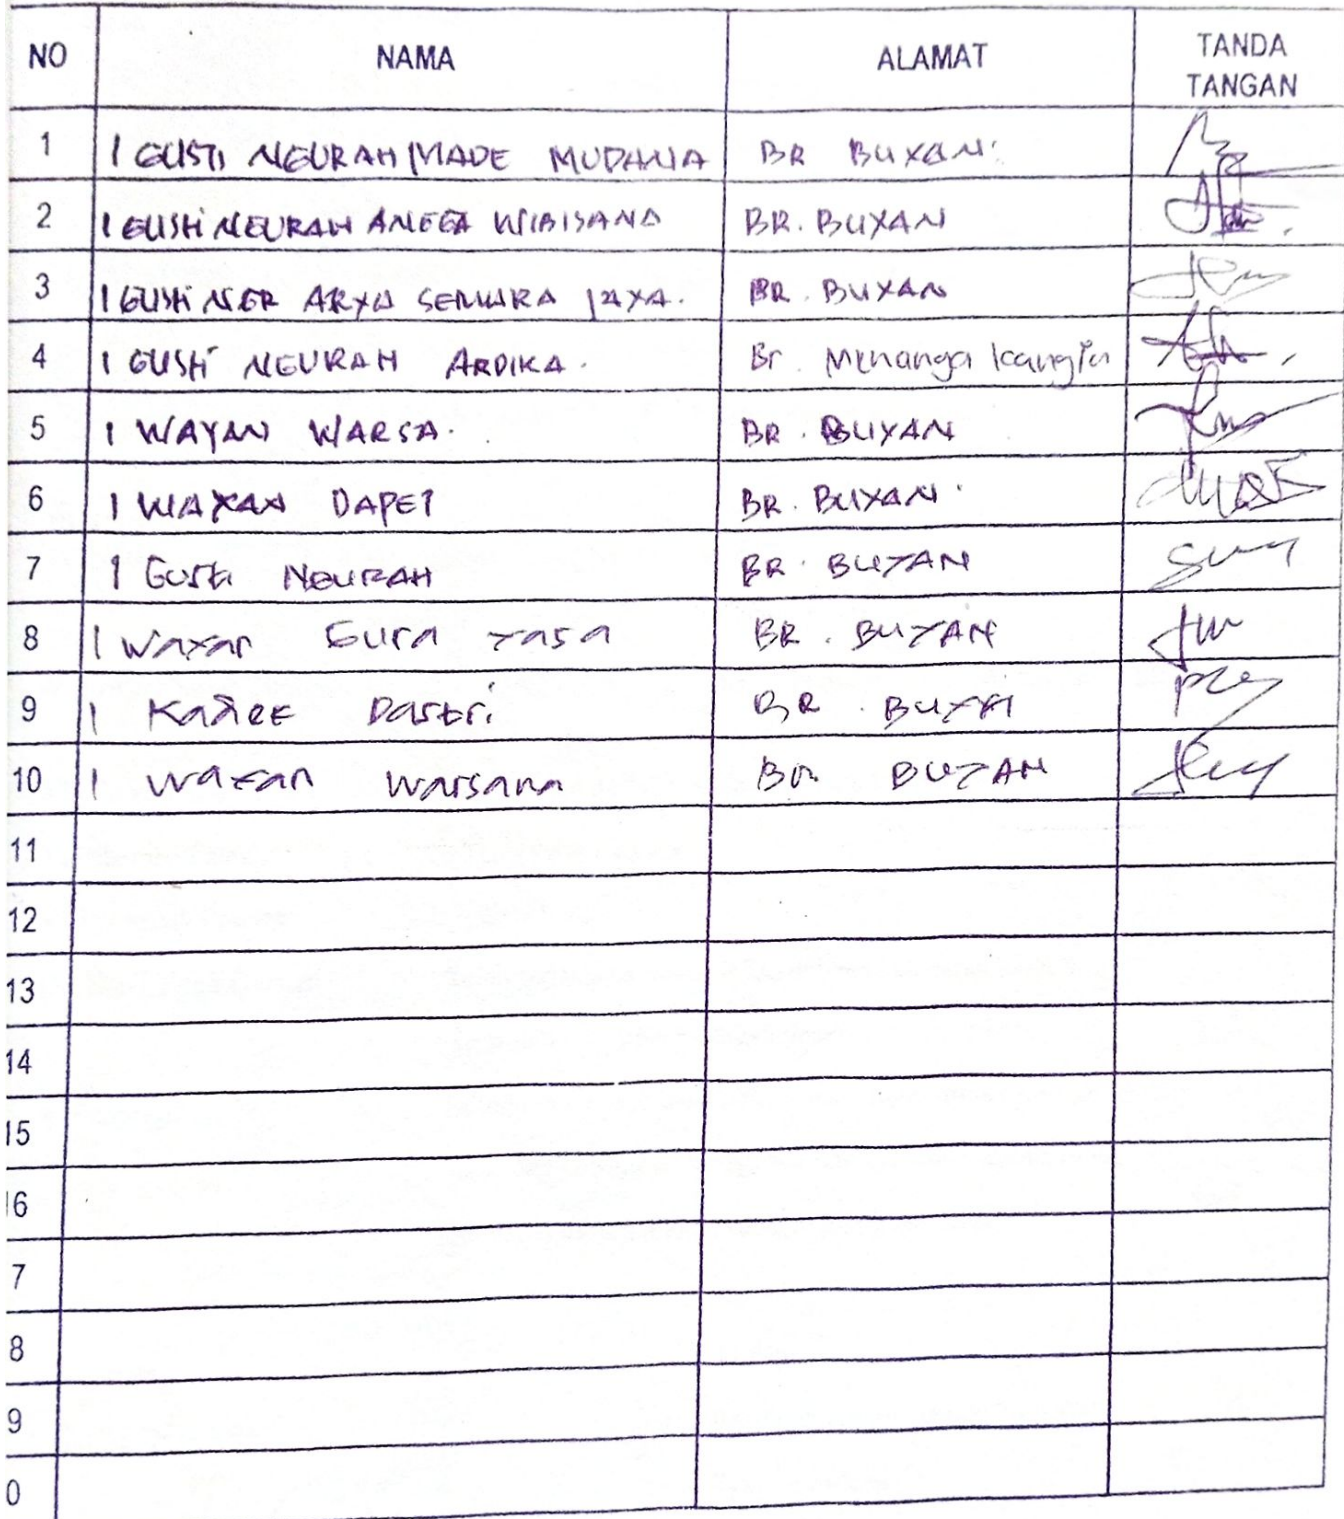 NO NAMA ALAMAT TANDA TANGAN
1 I GUSTI NGURAH MADE MUDANA BR BUYAN
2 I GUSTI NGURAH ANGGA WIBISANA BR. BUYAN
3 I GUSTI NGR ARYA SEMARA JAYA. BR. BUYAN
4 I GUSTI NGURAH ARDIKA. Br. Menanga kangin
5 I WAYAN WARSA. BR. BUYAN
6 I WAYAN DAPET BR. BUYAN.
7 I GUSTI NGURAH BR. BUYAN
8 I Wayan Sura Yasa BR. BUYAN
9 I Kadek Dastri BR.
10 I Wayan Warsana Br BUYAN
11
12
13
14
15
16
7
8
9
0